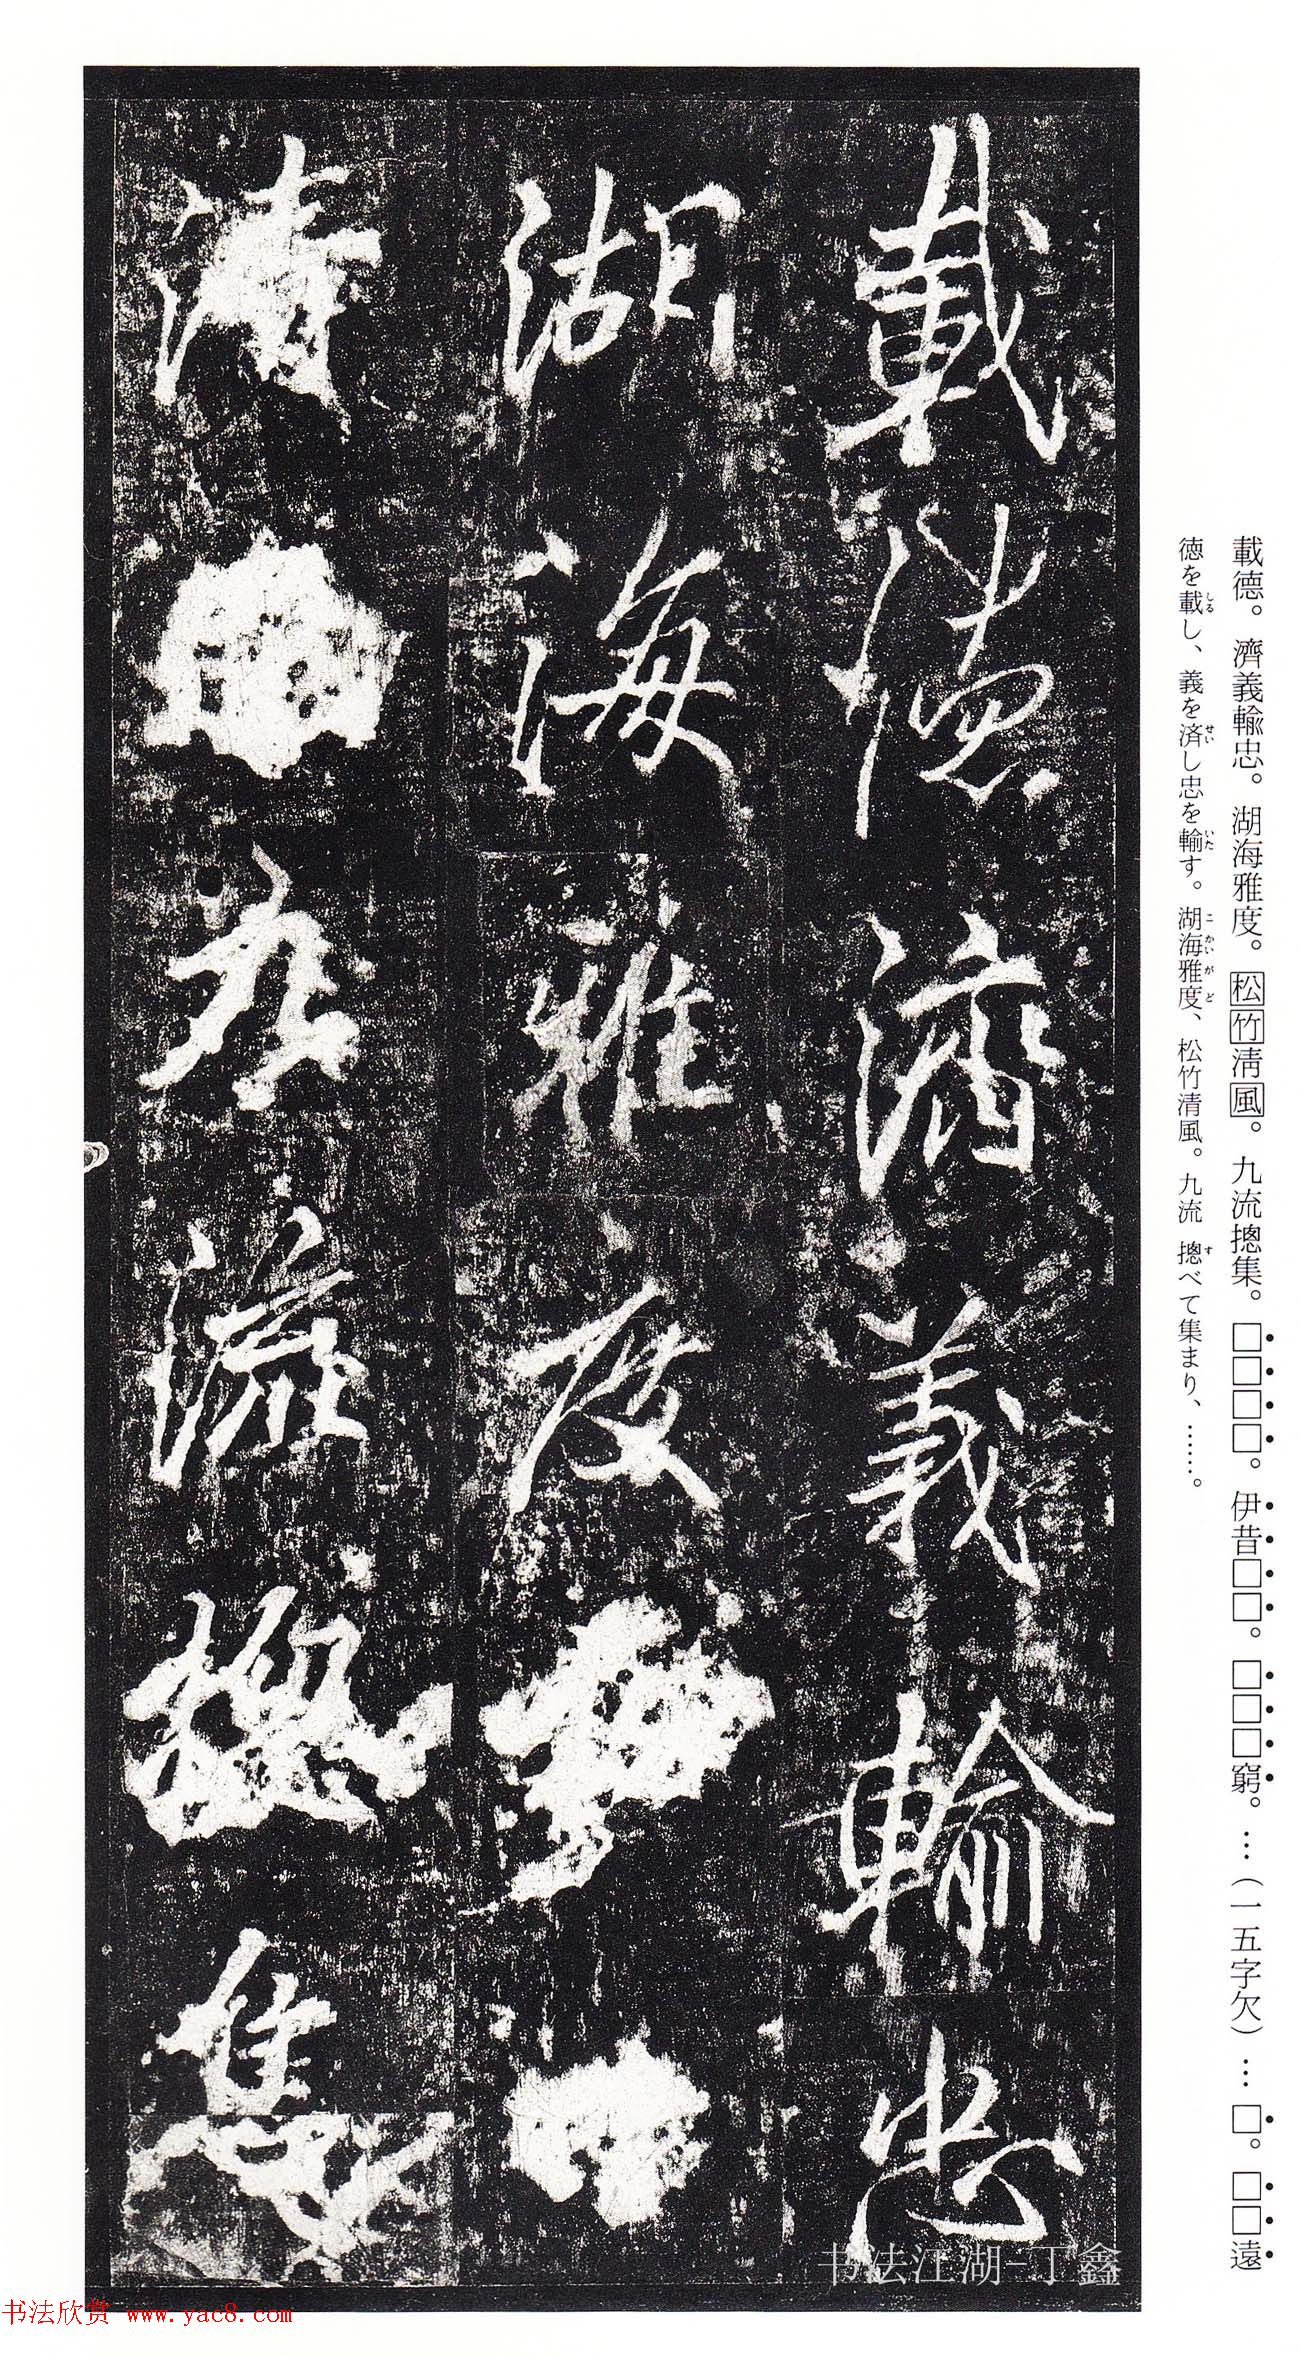 載德。濟義輸忠。湖海雅度。松竹淸風。九流摠集。□□□□。伊昔□□。□□□窮。…(一五字欠)…□。□□遠
徳を載し、義を済し忠を輸す。湖海雅度、松竹清風。九流 摠べて集まり、……。
しる せい いた こ かい が ど す
載德濟義輸忠
湖海雅度
清 九流摠集
书法江湖-丁鑫
书法欣赏 www.yac8.com